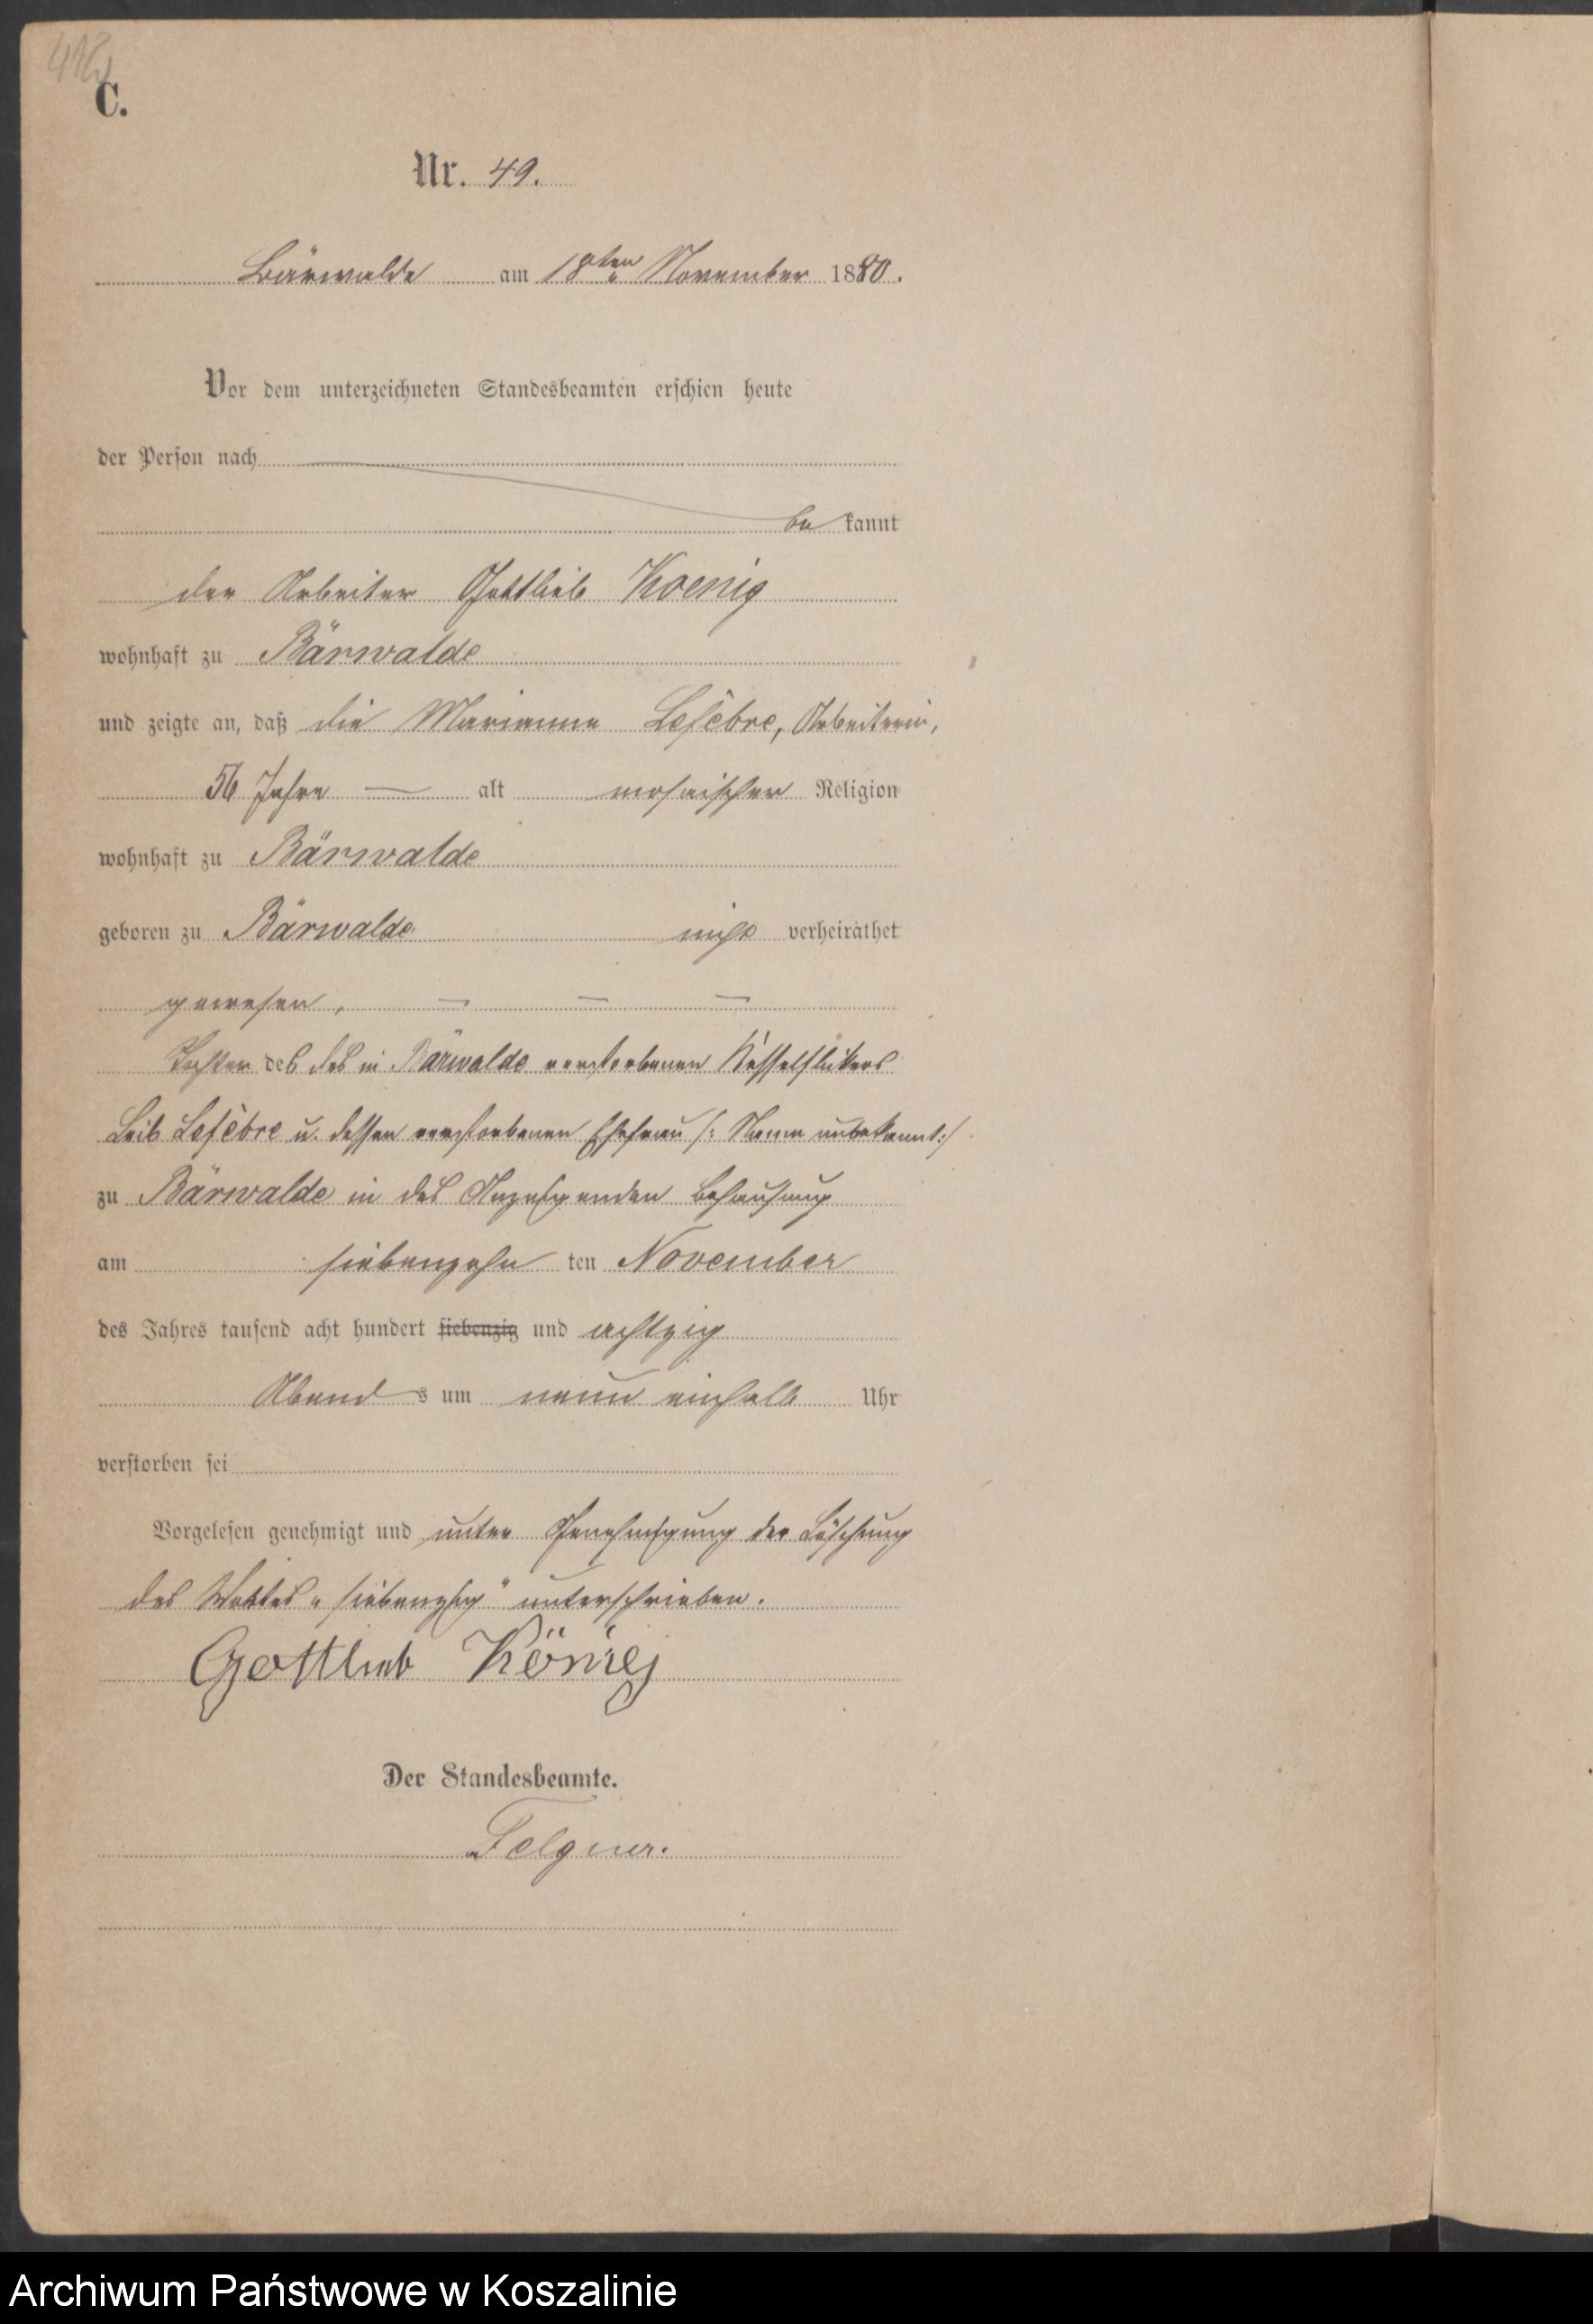 C.
Nr. 49.
Bärwalde am 18ten November 1880.
Vor dem unterzeichneten Standesbeamten erschien heute
der Person nach
be kannt
der Arbeiter Gottlieb Koenig
wohnhaft zu Bärwalde
und zeigte an, daß die Marianne Lefèbre, Arbeiterin,
56 Jahre — alt mosaischer Religion
wohnhaft zu Bärwalde
geboren zu Bärwalde nicht verheirathet
gewesen, — — —
Tochter des des in Bärwalde verstorbenen Kesselflickers
Leib Lefèbre u. dessen verstorbenen Ehefrau /: Name unbekannt :/
zu Bärwalde in des Anzeigenden Behausung
am siebenzehn ten November
des Jahres tausend acht hundert siebenzig und achtzig
Abend s um neun einhalb Uhr
verstorben sei
Vorgelesen genehmigt und unter Genehmigung der Löschung
des Wortes „siebenzig" unterschrieben.
Gottlieb König
Der Standesbeamte.
Felgner.
Archiwum Państwowe w Koszalinie